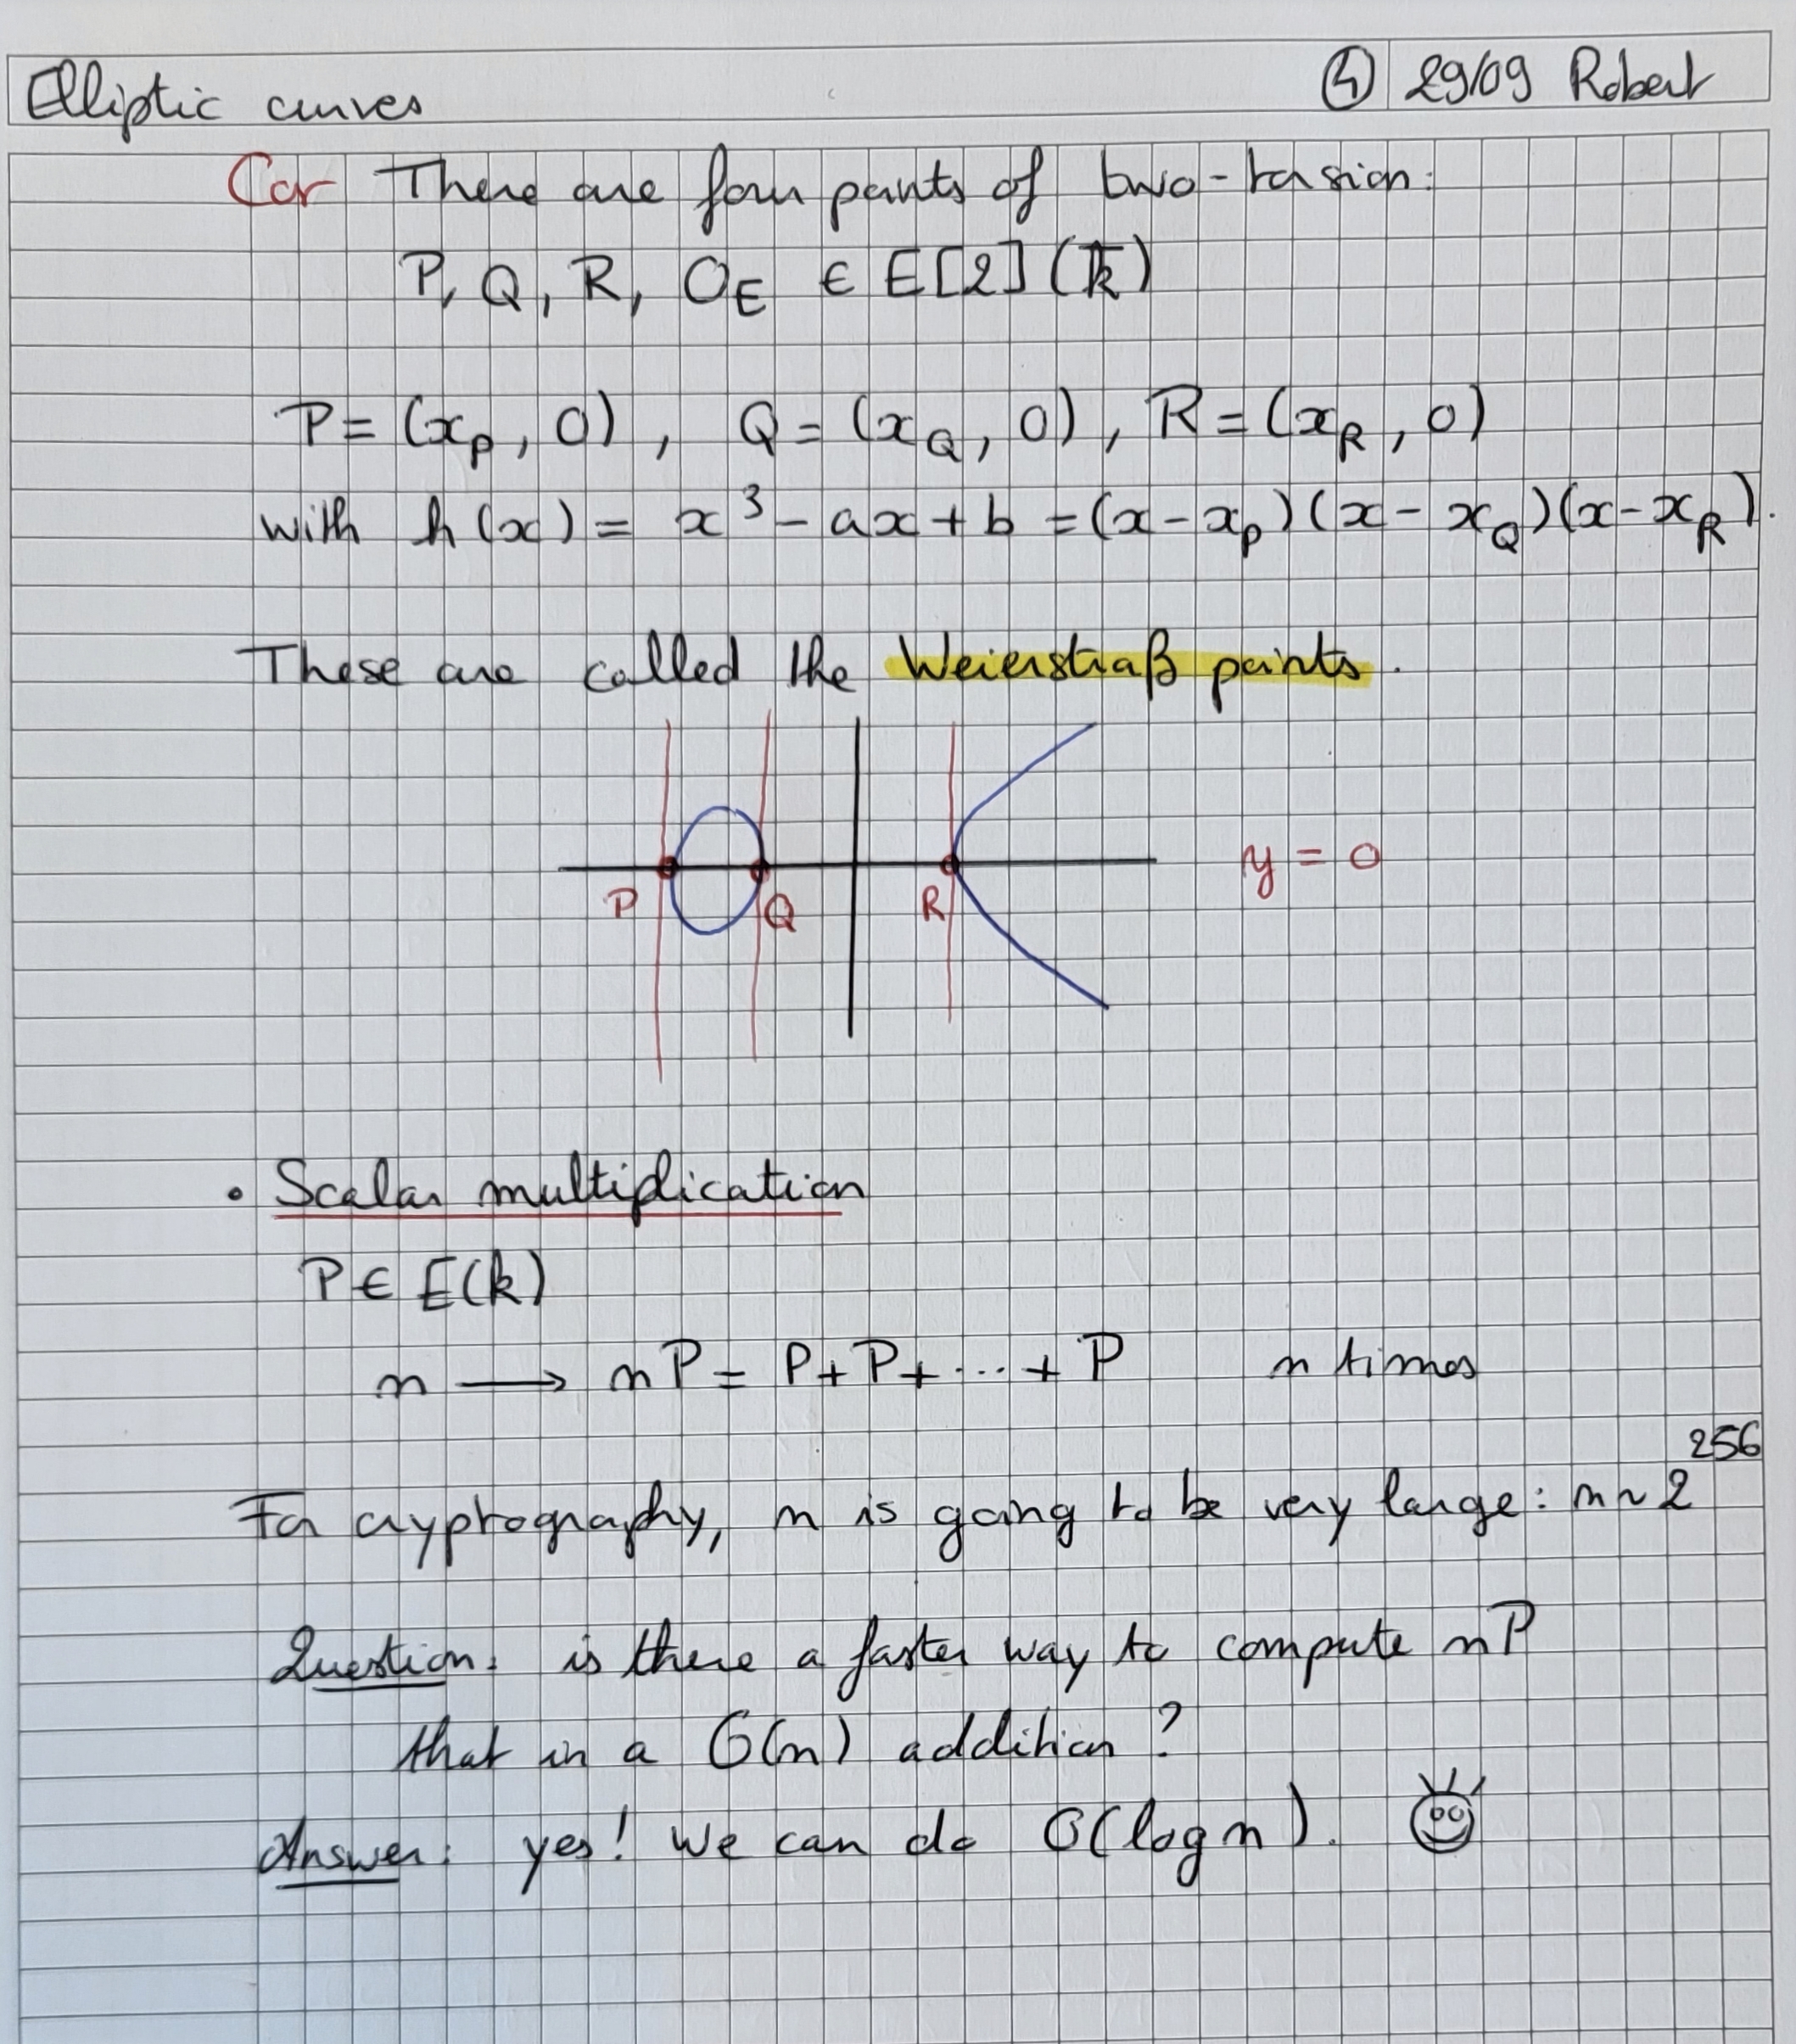 Elliptic curves ④ 29/09 Robert
Cor There are four points of two-torsion:
P, Q, R, O_E ∈ E[2](k̄)
P = (x_P, 0), Q = (x_Q, 0), R = (x_R, 0)
with h(x) = x³ - ax + b = (x - x_P)(x - x_Q)(x - x_R).
These are called the Weierstraß points.
P Q R y = 0
• Scalar multiplication
P ∈ E(k)
n ⟶ nP = P + P + ... + P n times
For cryptography, n is going to be very large: n ~ 2²⁵⁶
Question: is there a faster way to compute nP
that in a O(n) addition?
Answer: yes! We can do O(log n).